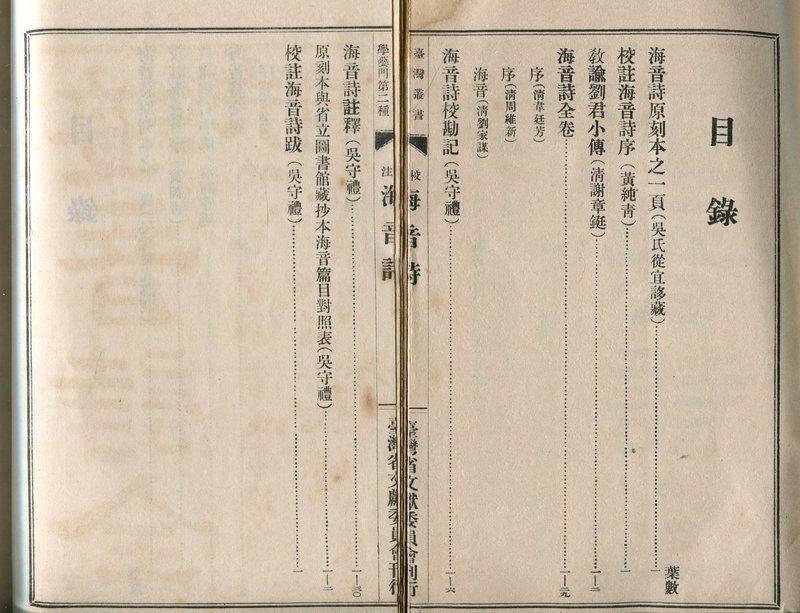 目錄
葉數
海音詩原刻本之一頁(吳氏從宜誃藏)……一
校註海音詩序(黃純青)……一
教諭劉君小傳(淸謝章鋌)……一—二
海音詩全卷……一—二九
序(淸韋廷芳)
序(淸周維新)
海音(淸劉家謀)
海音詩校勘記(吳守禮)……一—六
臺灣叢書
學藝門第二種
校注海音詩
臺灣省文獻委員會刊行
海音詩註釋(吳守禮)……一—三〇
原刻本與省立圖書館藏抄本海音篇目對照表(吳守禮)……一—二
校註海音詩跋(吳守禮)……一